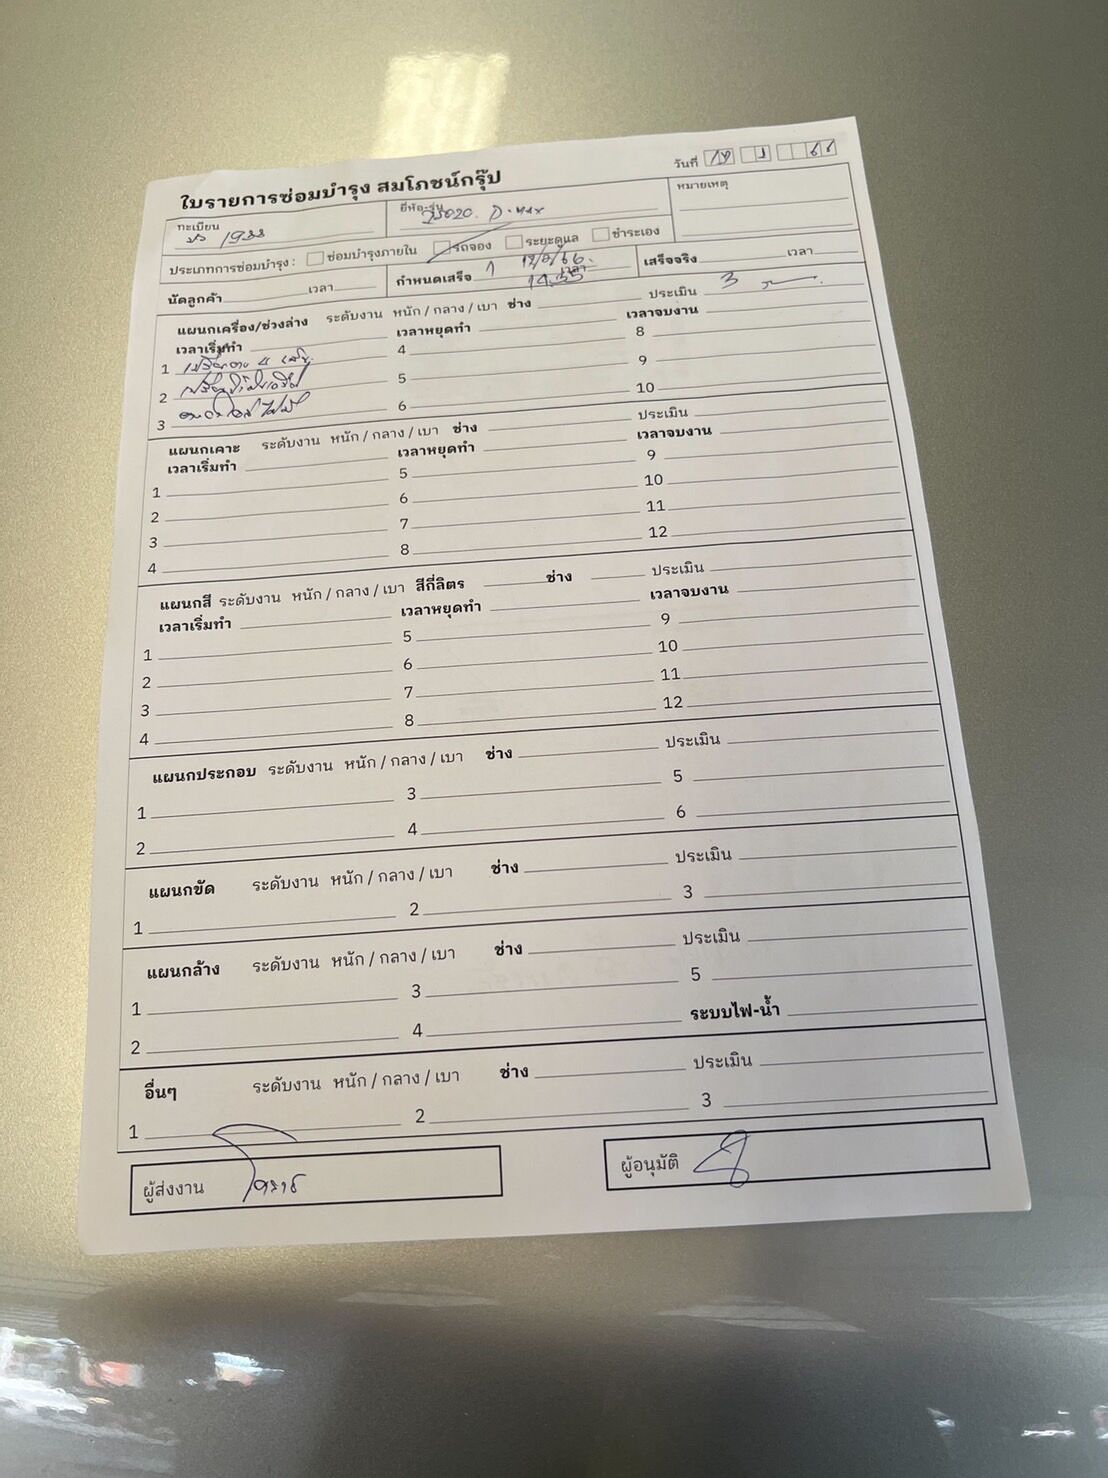 ใบรายการซ่อมบำรุง สมโภชน์กรุ๊ป
วันที่ 66
ทะเบียน 1988
ยี่ห้อ-รุ่น D-max
หมายเหตุ
ประเภทการซ่อมบำรุง : ซ่อมบำรุงภายใน รถจอง ระยะดูแล ชำระเอง
นัดลูกค้า เวลา กำหนดเสร็จ เวลา เสร็จจริง เวลา
แผนกเครื่อง/ช่วงล่าง ระดับงาน หนัก / กลาง / เบา ช่าง ประเมิน 3
เวลาเริ่มทำ เวลาหยุดทำ เวลาจบงาน
1 4 8
2 5 9
3 6 10
แผนกเคาะ ระดับงาน หนัก / กลาง / เบา ช่าง ประเมิน
เวลาเริ่มทำ เวลาหยุดทำ เวลาจบงาน
1 5 9
2 6 10
3 7 11
4 8 12
แผนกสี ระดับงาน หนัก / กลาง / เบา สีกี่ลิตร ช่าง ประเมิน
เวลาเริ่มทำ เวลาหยุดทำ เวลาจบงาน
1 5 9
2 6 10
3 7 11
4 8 12
แผนกประกอบ ระดับงาน หนัก / กลาง / เบา ช่าง ประเมิน
1 3 5
2 4 6
แผนกขัด ระดับงาน หนัก / กลาง / เบา ช่าง ประเมิน
1 2 3
แผนกล้าง ระดับงาน หนัก / กลาง / เบา ช่าง ประเมิน
1 3 5
2 4 ระบบไฟ-น้ำ
อื่นๆ ระดับงาน หนัก / กลาง / เบา ช่าง ประเมิน
1 2 3
ผู้ส่งงาน
ผู้อนุมัติ